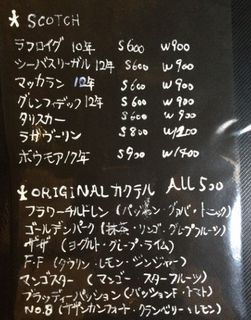 ★ SCOTCH
ラフロイグ 10年 S600 W900
シーバスリーガル 12年 S600 W900
マッカラン 12年 S600 W900
グレンフィデック 12年 S600 W900
タリスカー S600 W900
ラガヴーリン S800 W1200
ボウモア17年 S900 W1400
★ ORIGINALカクテル All 500
フラワーチルドレン (パッション・グァバ・トニック)
ゴールデンパーク (抹茶・リンゴ・グレープフルーツ)
ザザ (ヨグルト・グレープ・ライム)
F.F (ダウリン・レモン・ジンジャー)
マンゴスター (マンゴー・スターフルーツ)
ブラッディーパッション (パッションF・トマト)
No.8 (サザンカンフォート・クランベリー・レモン)